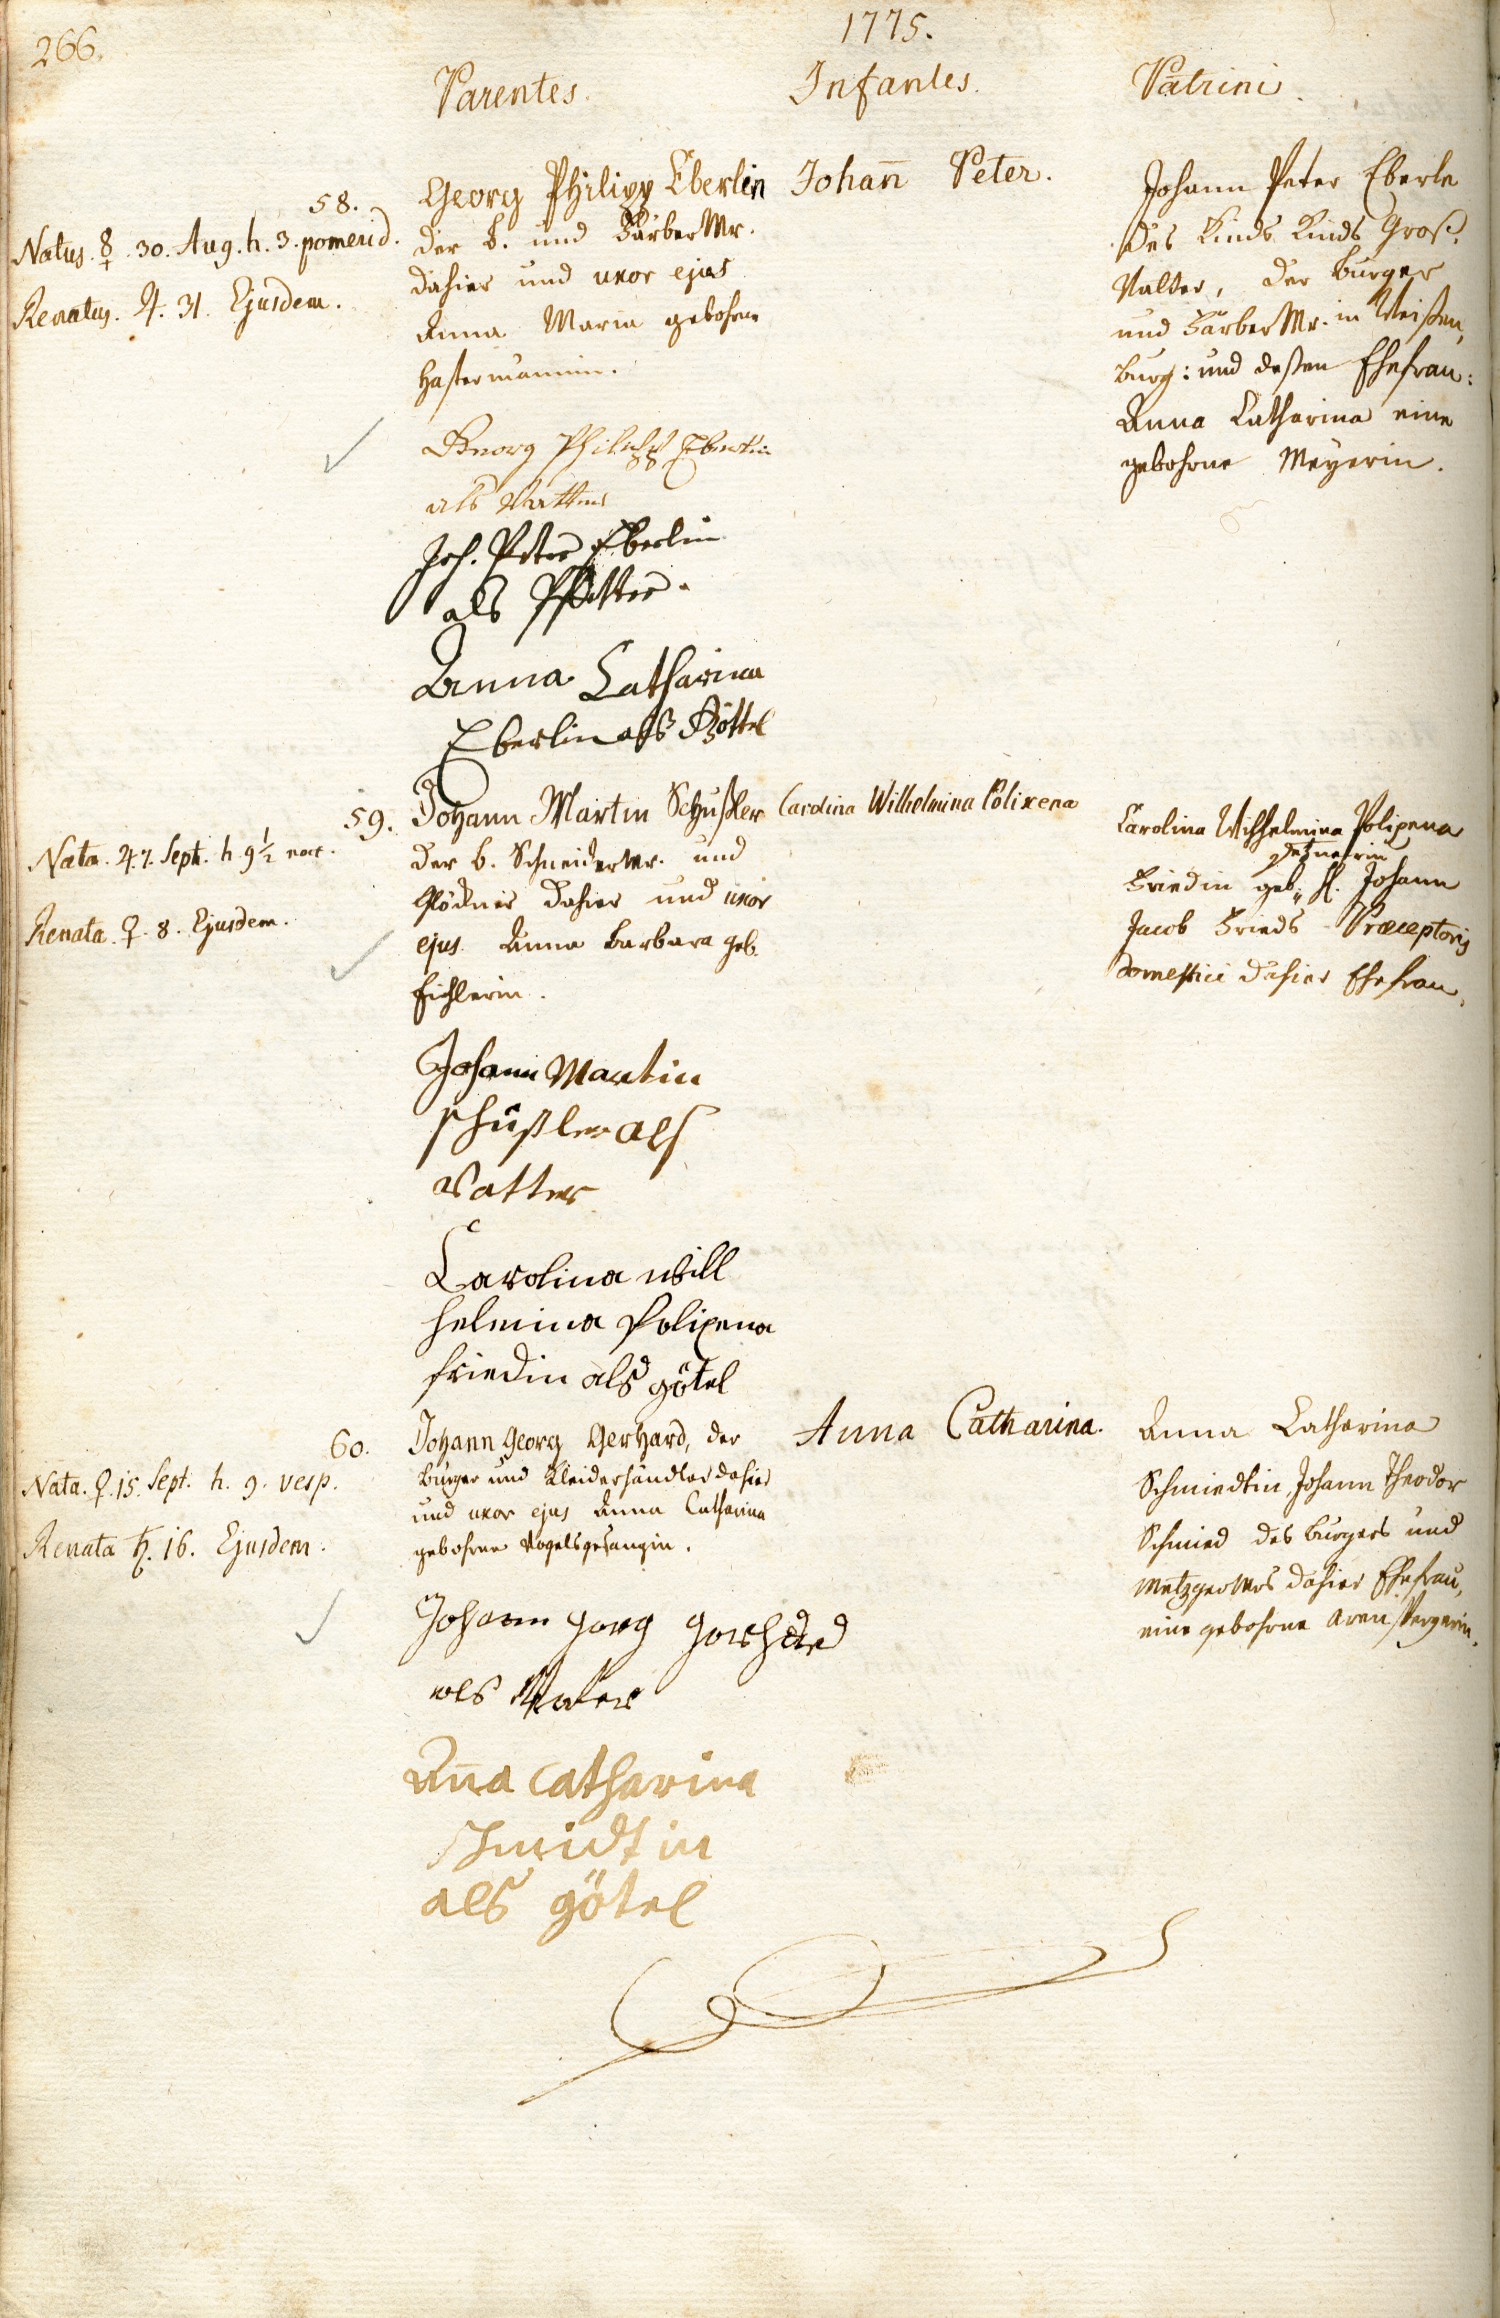 266.
1775.
Parentes.
Infantes.
Patrini.
58.
Natus. ☿. 30. Aug. h. 3. pomerid.
Renatus. ♃. 31. Ejusdem.
Georg Philipp Eberlin
der b. und Färber Mr.
dahier und uxor ejus
Anna Maria gebohrne
Hastermännin.
Johan̄ Peter.
Johann Peter Eberle
des Kinds Kinds Groß-
Vatter, der Burger
und Färber Mr. in Weißen,
burg: und deßen Ehefrau:
Anna Catharina eine
gebohrne Meyerin.
Georg Philipp Eberlin
als Vatter
Joh. Peter Eberlin
als Pfetter.
Anna Catharina
Eberlin als Göttel
59.
Nata. ♃. 7. Sept. h. 9½ noct.
Renata. ♀. 8. Ejusdem.
Johann Martin Schußler
der b. Schneider Mr. und
Glöckner dahier und uxor
ejus Anna Barbara geb.
Eichlerin.
Carolina Wilhelmina Polixena
Carolina Wilhelmina Polixena
Friedin geb. H. Johann
Jacob Frieds Præceptoris
domestici dahier Ehefrau.
Johann Martin
schüßler als
Vatter
Carolina will
helmina Polixena
friedin als götel
60.
Nata. ♀. 15. Sept. h. 9. vesp.
Renata ♄. 16. Ejusdem.
Johann Georg Gerhard, der
Burger und Kleiderhändler dahier
und uxor ejus Anna Catharina
gebohrne Vogelsgesangin.
Anna Catharina.
Anna Catharina
Schmiedtin, Johann Theodor
Schmied des Burgers und
Metzger Mrs dahier Ehefrau,
eine gebohrne
Johann Georg Gerhard
als Vater
An̄a Catharina
schmidtin
als götel